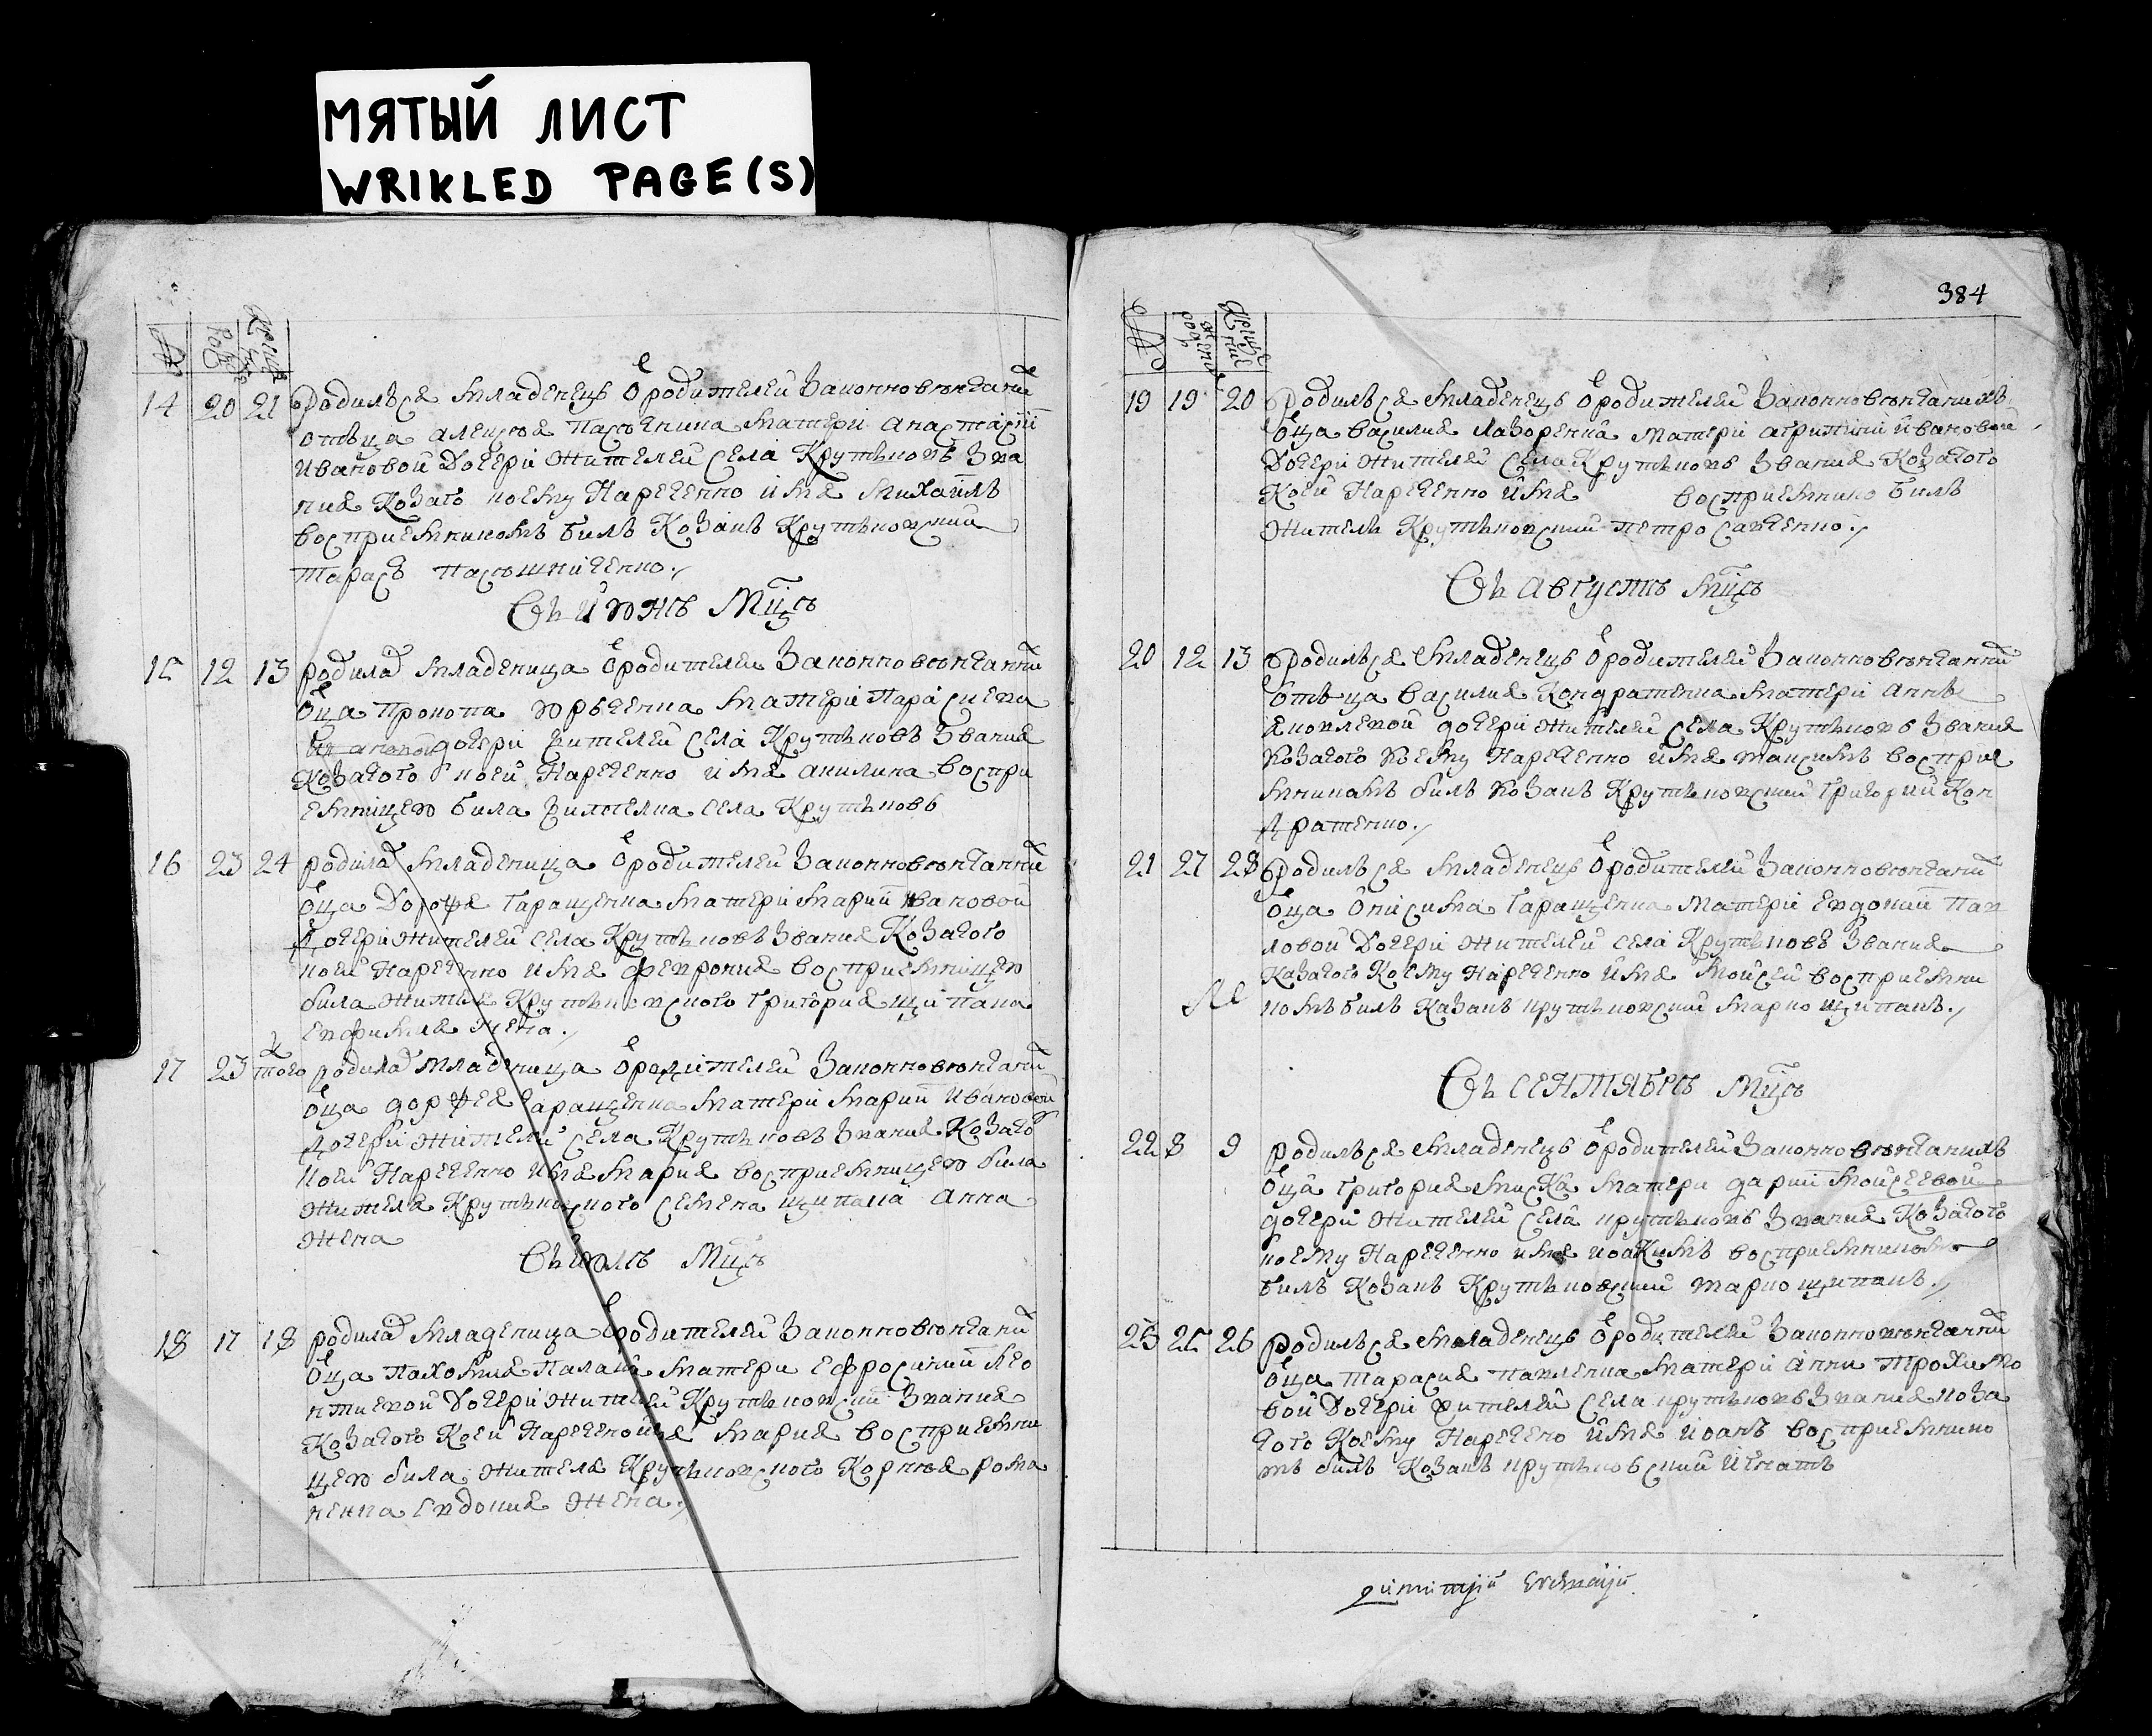 МЯТЫЙ ЛИСТ
WRIKLED PAGE(S)
№
14 20 21 Родилъся младенецъ ѿ родителей законновѣнчаній
отъца алеѯѣя Пасѣчника матери анастасіи
ивановой дочери жителей села Крутѣковъ зва
ния Козаго коему Нареченно имя михаилъ
восприемникомъ билъ Козакъ Крутѣковский
Тарасъ Пасѣшниченко
Въ июнѣ Мцѣ
15 12 13 родила младеница ѿ родителей законновѣнчанни
ѿца Прокопа юрьченка матери Параскеви
дочери жителей села Крутѣковъ звания
козачого коей Нареченно имя акилина воспри
емницею била жителка села Крутѣковъ
16 23 24 родила младеница ѿ родителей законновѣнчанни
ѿца Дорофя Таращенка матери марии ивановой
Дочери жителей села Крутѣковъ звания Козачого
коей Нареченно имя феврония восприемницею
била жителя Крутѣковского Григория щипака
евфимия жена
17 23 того родила младеница ѿ родителей законновѣнчани
ѿца дорѳея Таращенка матери марии ивановой
дочери жителей села Крутѣковъ звания Козачо
коей Нареченно имя мария восприемницею била
жителя Крутѣковского семена щипака анна
жена
Въ июлѣ Мцѣ
18 17 18 родила младеница ѿ родителей законновѣнчани
ѿца Пахомия Палаш матери Ефросинии Лео
нтиевой дочери жителей Крутѣковски звания
Козачого Коей Нареченно имя мария восприемни
цею била жителя Крутѣковского Корнѣя рома
ненка евдокия жена
384
№
19 19 20 Родилъся младенецъ ѿ родителей законновѣнчанихъ
ѿца василия Лазоренка матери агрипини ивановой
Дочери жителей села Крутѣковъ звания Козачого
Коей Нареченно имя восприемнико билъ
житель Крутѣковский петро савченко
Въ августѣ мцѣ
20 12 13 Родилъся младенецъ ѿ родителей законновѣнчанній
отъца василия Кондратенка матери аннѣ
яковлевой дочери жителей села Крутѣковъ звания
козачого коему Нареченно имя максимъ восприе
мникамъ билъ козакъ Крутѣковский Григорий Кон
дратенко
21 27 28 Родилъся младенецъ ѿ родителей законновѣнчаний
ѿца Онисима Таращенка матери Евдокии Пав
ловой Дочери жителей села Крутѣковъ звания
Казачого Коему Нареченно имя моисей восприемни
комъ билъ Казакъ крутѣковский марко щипакъ
Въ сентябрѣ Мцѣ
22 8 9 родилъся младенецъ ѿ родителей законновѣнчанихъ
ѿца григория миска матери дарии моисеевой
дочери жителей села крутѣковъ звания Козачого
коему Нареченно имя иоакимъ восприемникомъ
билъ Козакъ Крутѣковский марко щипакъ
23 25 26 родилъся младенецъ ѿ родителей законновѣнчанний
ѿца тарасия павленка матери анни трохимо
вой Дочери жителей села крутѣковъ звания коза
чого Коему Наречено имя иоанъ восприемнико
мъ билъ Козакъ крутѣковский игнатъ